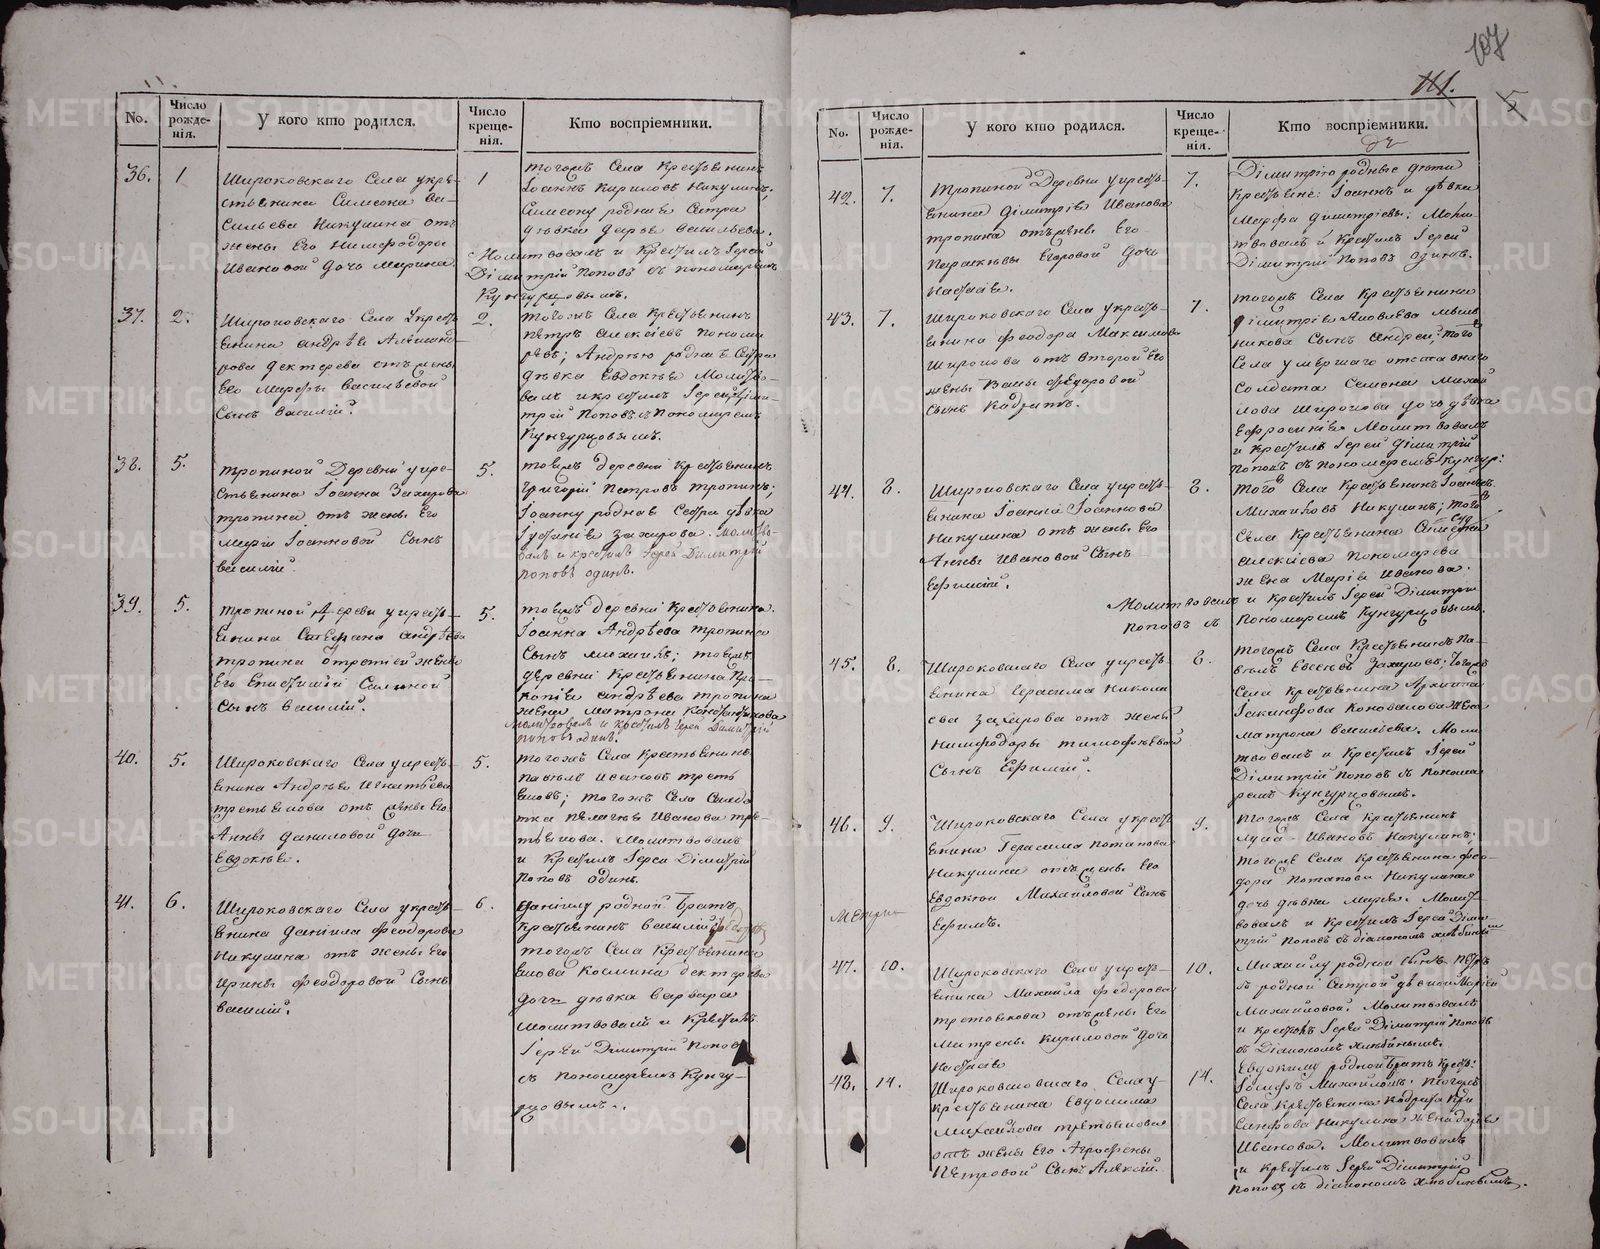 107
111.
5
No.
Число рожденія.
У кого кто родился.
Число крещенія.
Кто воспріемники.
36.
1
Широковскаго Села укре-
стьянина Симеона Ва-
сильева Никулина отъ
жены Его Нимфодоры
Ивановой дочь Марина
1
тогожъ Села Крестьянинъ
Іоаннъ Кириловъ Никулинъ,
Симеону родная Сестра
дѣвка Дарья Васильева.
Молитвовалъ и Крестилъ Іерей
Дімитрій Поповъ съ пономаремъ
Кунгурцовымъ.
37.
2.
Широковскаго Села укресть
янина Андрѣя Александ-
рова Дектерева отъ жены
Его Марфы Васильевой
Сынъ Василій.
2.
тогожъ Села Крестьянинъ
Петръ Алексіевъ Понома
ревъ; Андрѣю родная Сестра
дѣвка Евдокія Молитво-
валъ и крестилъ Іерей Діми-
трій Поповъ съ Пономаремъ
Кунгурцовымъ.
38.
5.
тропиной Деревни укре-
стьянина Іоанна Захарова
тропина отъ жены Его
Маріи Іоанновой Сынъ
Василій.
5.
тояжъ деревни Крестьянинъ
Григорій Петровъ тропинъ;
Іоанну родная Сестра дѣвка
Іустинія Захарова. Молитво-
валъ и крестилъ Іерей Димитрій
Поповъ одинъ.
39.
5.
тропиной Деревни укресть-
янина Стефана Андрѣева
тропина отъ третіей жены
Его Епистиміи
Сынъ Василій.
5.
тояжъ деревни Крестьянина
Іоанна Андрѣева тропина
Сынъ Михаилъ; тояжъ
деревни Крестьянина Про-
копія Андрѣева тропина
жена Матрона
молитвовалъ и крестилъ Іерей Димитрій
Поповъ одинъ.
40.
5.
Широковскаго Села укресть-
янина Андрѣя Игнатьева
третьякова отъ жены Его
Анны Даниловой дочь
Евдокія.
5.
тогожъ Села Крестьянинъ
Павелъ Ивановъ треть
яковъ; тогожъ Села Солда
тка Пелагія Иванова тре
тьякова. Молитвовалъ
и Крестилъ Іерей Дімитрій
Поповъ одинъ.
41.
6.
Широковскаго Села укресть-
янина Даніила Феодорова
Никулина отъ жены Его
Ирины Феодоровой Сынъ
Василій.
6.
Даніилу родной братъ
Крестьянинъ Василій Федоровъ
тогожъ Села Крестьянина
Якова Космина Дектерева
дочь дѣвка Варвара
Молитвовалъ и Крестилъ
Іерей Димитрій Поповъ
съ Пономаремъ Кунгу-
рцовымъ.
No.
Число рожденія.
У кого кто родился.
Число крещенія.
Кто воспріемники.
42.
7.
Тропиной Деревни укресть-
янина Дімитрія Иванова
тропина отъ жены Его
Параскевы Егоровой Дочь
Настасія.
7.
Дімитрію родные дѣти
Крестьяне: Іоаннъ и дѣвка
Марфа Димитріевы. Моли
твовалъ и Крестилъ Іерей
Дімитрій Поповъ одинъ.
43.
7.
Широковскаго Села укресть-
янина Феодора Максимова
Широкова отъ второй Его
жены Вассы Федоровой
Сынъ Кодратъ.
7.
тогожъ Села Крестьянина
Дімитрія Яковлева Мель
никова Сынъ Андрей; того
Села умершаго отставнаго
Солдата Семена Михай
лова Широкова дочь дѣвка
Ефросинія Молитвовалъ
и крестилъ Іерей Дімитрій
Поповъ съ пономаремъ Кунгур:
44.
8.
Широковскаго Села укресть-
янина Іоанна Іоаннова
Никулина отъ жены Его
Анны Ивановой Сынъ
Ефимій.
8.
того Села Крестьянинъ Іоаннъ
Михайловъ Никулинъ; того
Села Крестьянина
Алексіева Пономарева
жена Марія Иванова.
Молитвовалъ и крестилъ Іерей Дімитрій
Поповъ съ Пономаремъ Кунгурцовымъ.
45.
8.
Широковскаго Села укресть-
янина Герасима Никола
ева Захарова отъ жены
Нимфодоры тимофѣевой
Сынъ Ефимій.
8.
тогожъ Села Крестьянинъ Па-
велъ Евсеевъ Захаровъ; тогожъ
Села Крестьянина Архипа
Іакинфова Коновалова жена
Матрона Васильева. Моли
твовалъ и Крестилъ Іерей
Дімитрій Поповъ съ Понома
ремъ Кунгурцовымъ.
46.
9.
Широковскаго Села укресть
янина Герасима Потапова
Никулина отъ жены Его
Евдокіи Михайловой Сынъ
Ефимъ.
Метри
9.
тогожъ Села Крестьянинъ
Лука Ивановъ Никулинъ;
тогожъ Села Крестьянина Фео-
дора Потапова Никулина
дочь дѣвка Марья. Молит-
вовалъ и крестилъ Іерей Дими-
трій Поповъ съ діакономъ Хлѣбинымъ
47.
10.
Широковскаго Села укресть-
янина Михайла Федорова
третьякова отъ жены Его
Матрены Кириловой дочь
Настасія
10.
Михаилу родной Сынъ Петръ
съ родной Сестрой дѣвкой Маріей
Михайловой. Молитвовалъ
и крестилъ Іерей Дімитрій Поповъ
съ Діакономъ Хлѣбинымъ.
48.
14.
Широковскаго Села у-
Крестьянина Евдокима
Михайлова третьякова
отъ жены Его Агрофены
Петровой Сынъ Алексій.
14.
Евдокиму родной братъ Крест:
Іосифъ Михайловъ. тогожъ
Села Крестьянина Кодрата
Никулина жена Дарья
Иванова. Молитвовалъ
и крестилъ Іерей Дімитрій
Поповъ съ діакономъ Хлѣбинымъ.
METRIKI.GASO-URAL.RU